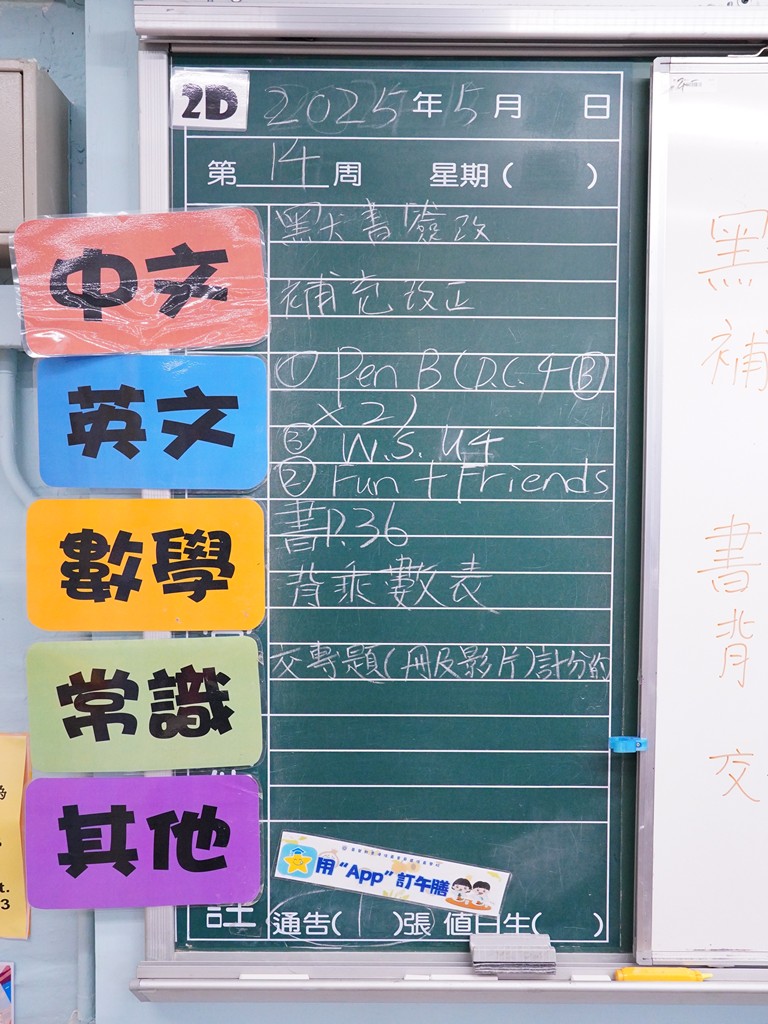 2D 2025年5月 日
第14周 星期( )
中文
默書簽改
補充改正
英文
① Pen B (D.C. 4 Ⓑ
x 2)
③ W.S. U4
② Fun + Friends
數學
書P.36
背乘數表
常識
交專題(冊及影片)計分的
其他
用“App”訂午膳
註 通告(1)張 值日生( )
黑
補
書
背
交
t.
3